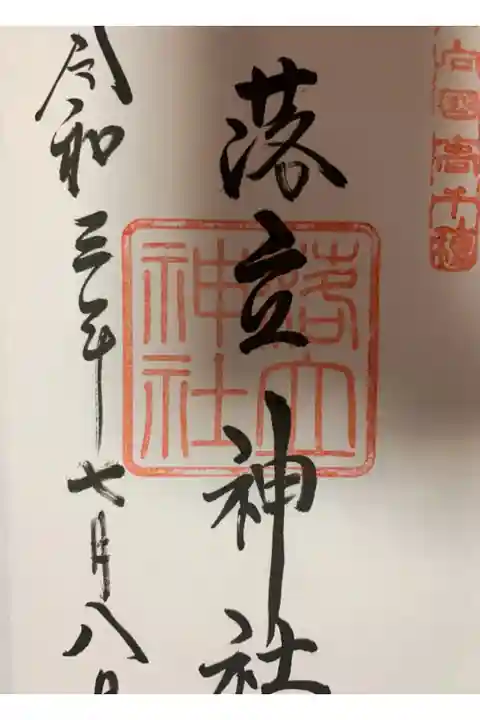 向国高千穂
落立神社
落立神社
令和三年七月八日